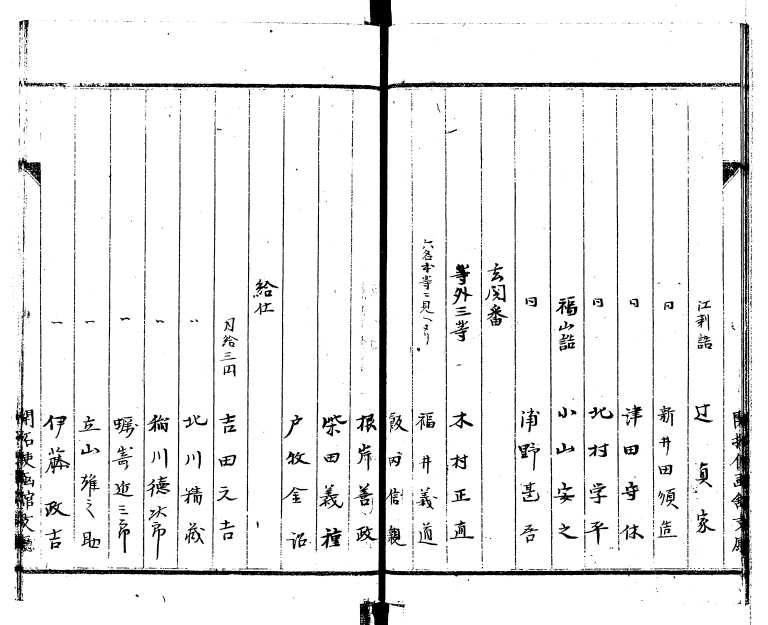 江刺詰 辻貞家
日 新井田須造
日 津田守休
日 北村学平
福山詰 小山安之
日 浦野甚吾
玄関番
等外三等 木村正直
六名本等ニ見 福井義道
飯田信親
根岸善政
柴田義種
戸牧金治
給仕
月給三円 吉田元吉
〃 北川精蔵
一 稲川徳次郎
一 蠣崎近三郎
一 立山雄之助
一 伊藤政吉
開拓使函館支庁